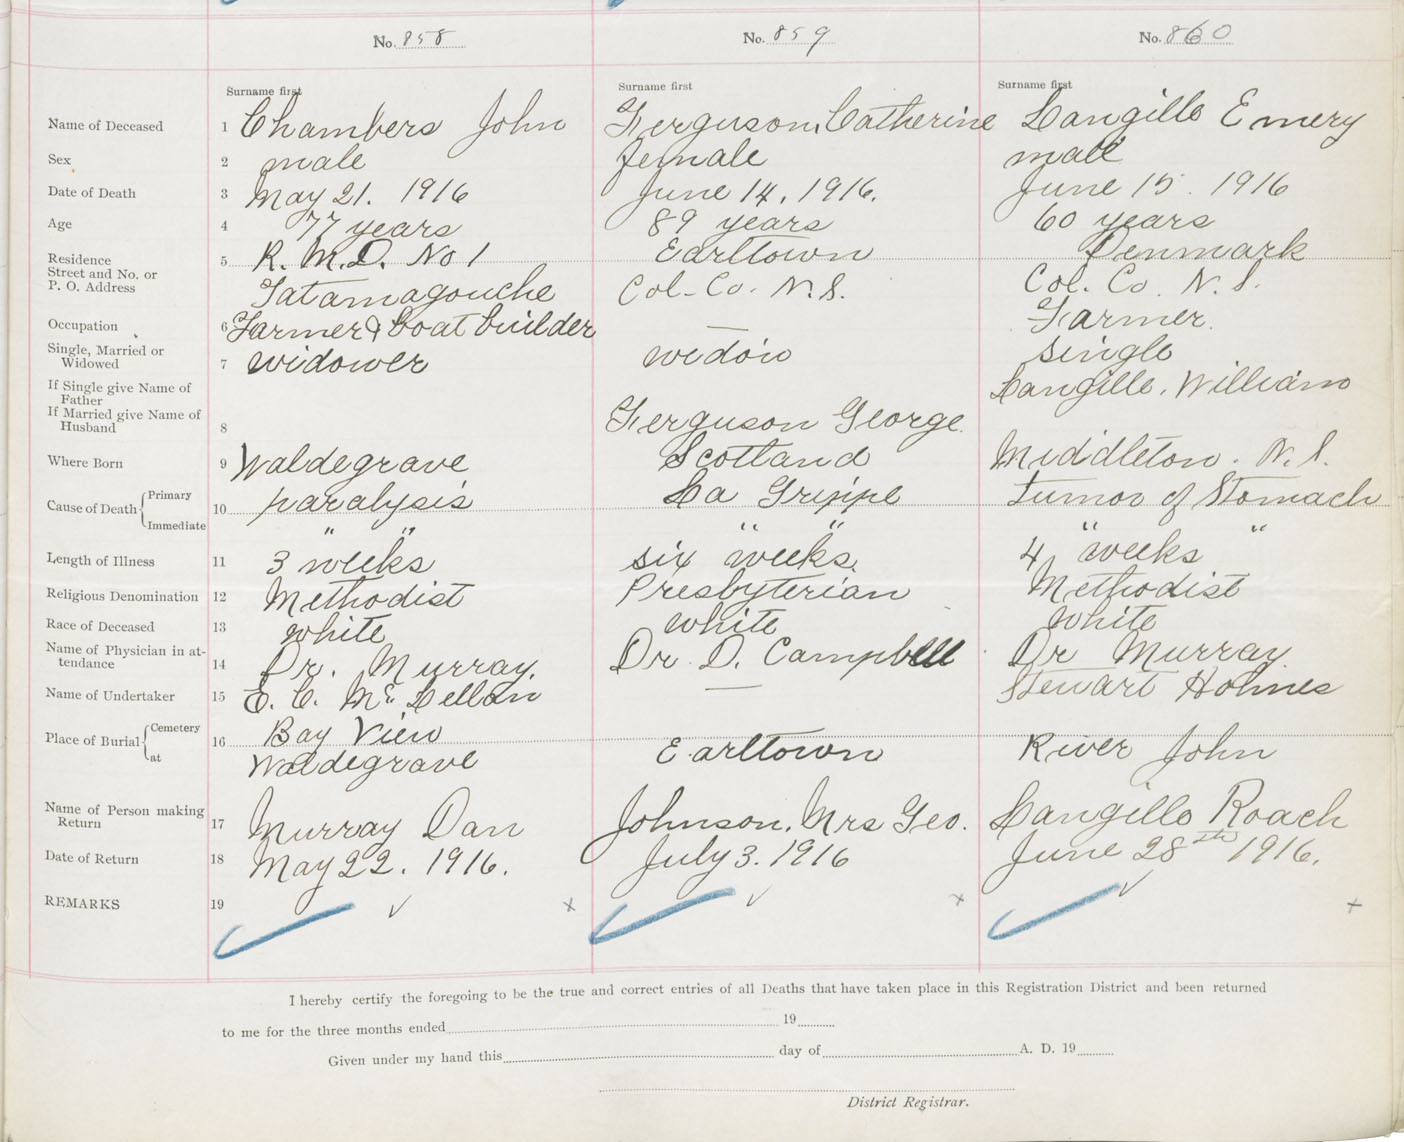 No. 858 No. 859 No. 860
Surname first Surname first Surname first
Name of Deceased 1 Chambers John Ferguson, Catherine Langille Emery
Sex 2 male female male
Date of Death 3 May 21. 1916 June 14, 1916. June 15. 1916
Age 4 77 years 89 years 60 years
Residence 5 R. M. D. No 1 Earltown Denmark
Street and No. or
P. O. Address Tatamagouche Col-Co. N.S. Col. Co. N. S.
Occupation 6 Farmer & boat builder — Farmer.
Single, Married or
Widowed 7 widower widow single
If Single give Name of
Father Langille, William
If Married give Name of
Husband 8 Ferguson George.
Where Born 9 Waldegrave Scotland Middleton. N. S.
Cause of Death { Primary 10 paralysis La Grippe Tumor of Stomach
Immediate " " " " " "
Length of Illness 11 3 weeks six weeks. 4 weeks
Religious Denomination 12 Methodist Presbyterian Methodist
Race of Deceased 13 white white white
Name of Physician in at-
tendance 14 Dr. Murray. Dr. D. Campbell Dr Murray.
Name of Undertaker 15 E. C. Mc Lellan — Stewart Holmes
Place of Burial { Cemetery 16 Bay View
at Waldegrave Earltown River John
Name of Person making
Return 17 Murray Dan Johnson, Mrs Geo. Langille Roach
Date of Return 18 May 22. 1916. July 3. 1916 June 28th 1916.
REMARKS 19
I hereby certify the foregoing to be the true and correct entries of all Deaths that have taken place in this Registration District and been returned
to me for the three months ended 19
Given under my hand this day of A. D. 19
District Registrar.